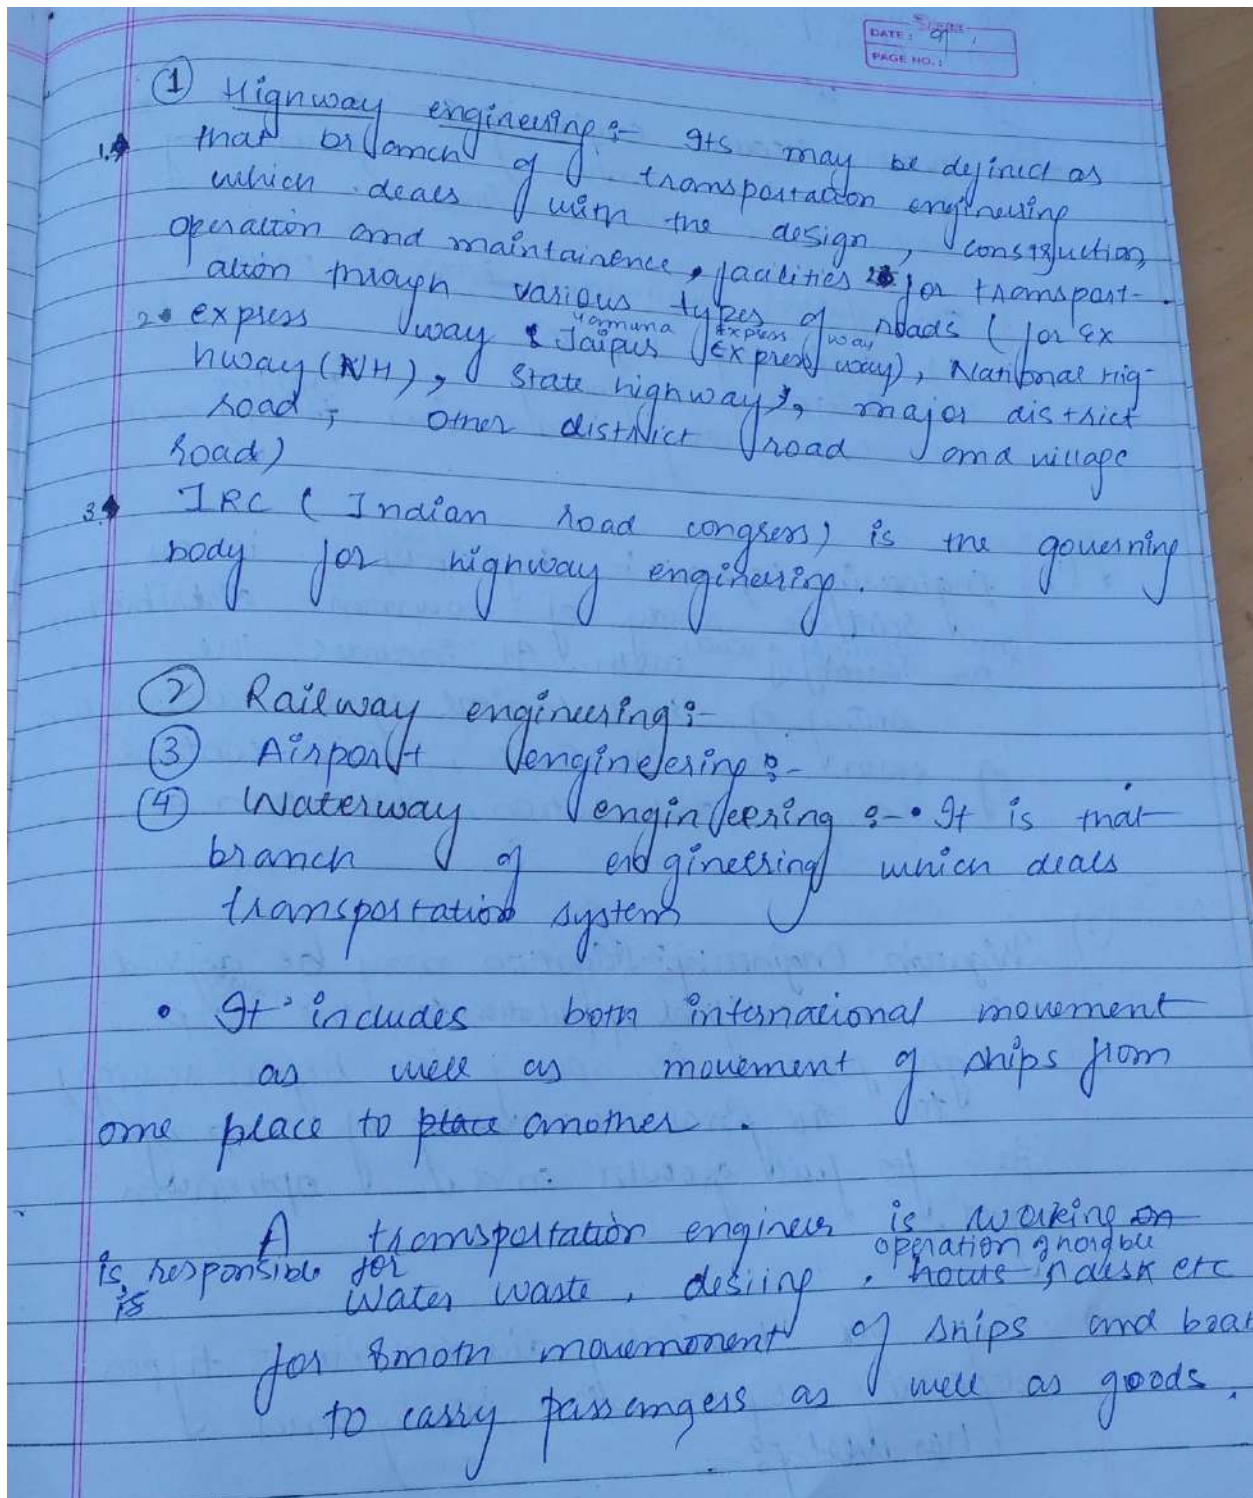 DATE:
PAGE NO.:
① Highway engineering :- Its may be defined as
1. that branch of transportation engineering
which deals with the design, construction,
operation and maintainence, facilities for transport-
ation through various types of roads (for Ex
2. express way Yamuna Express way
Jaipur Express way), National Hig-
hway (NH), State highway, major district
road, other district road and village
road)
3. IRC (Indian road congress) is the governing
body for highway engineering.
② Railway engineering :-
③ Airport engineering :-
④ Waterway engineering :- • It is that
branch of engineering which deals
transportation system
• It includes both international movement
as well as movement of ships from
one place to place another.
A transportation engineer is working on
is responsible for operation
is water waste, desiing, etc
for smoth movemonent of ships and boat
to carry passangers as well as goods.